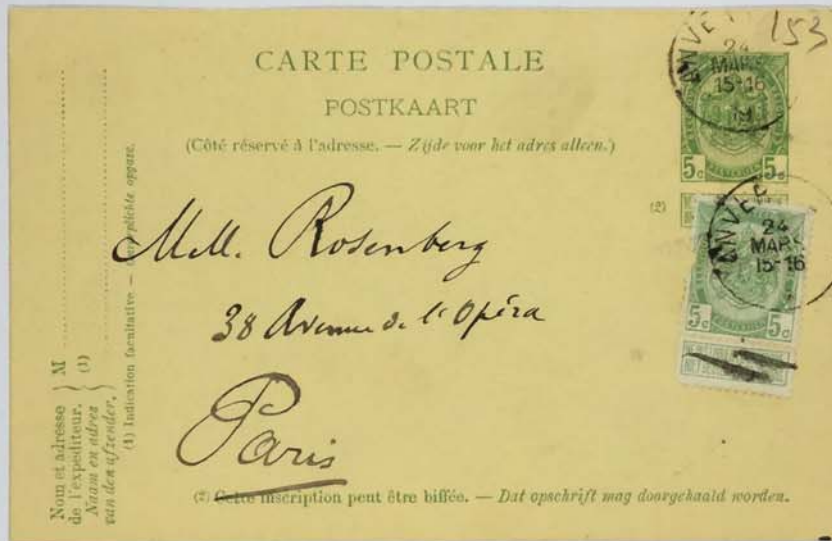 153
CARTE POSTALE
POSTKAART
(Côté réservé à l'adresse. — Zijde voor het adres alleen.)
24
MARS
15-16
5c 5c
(2)
ANVER
24
MARS
15-16
5c 5c
M.M. Rosenberg
38 Avenue de l'Opéra
Paris
(2) Cette inscription peut être biffée. — Dat opschrift mag doorgehaald worden.
Nom et adresse
de l'expéditeur.
Naam en adres
van den afzender.
} M
(1)
(1) Indication facultative —